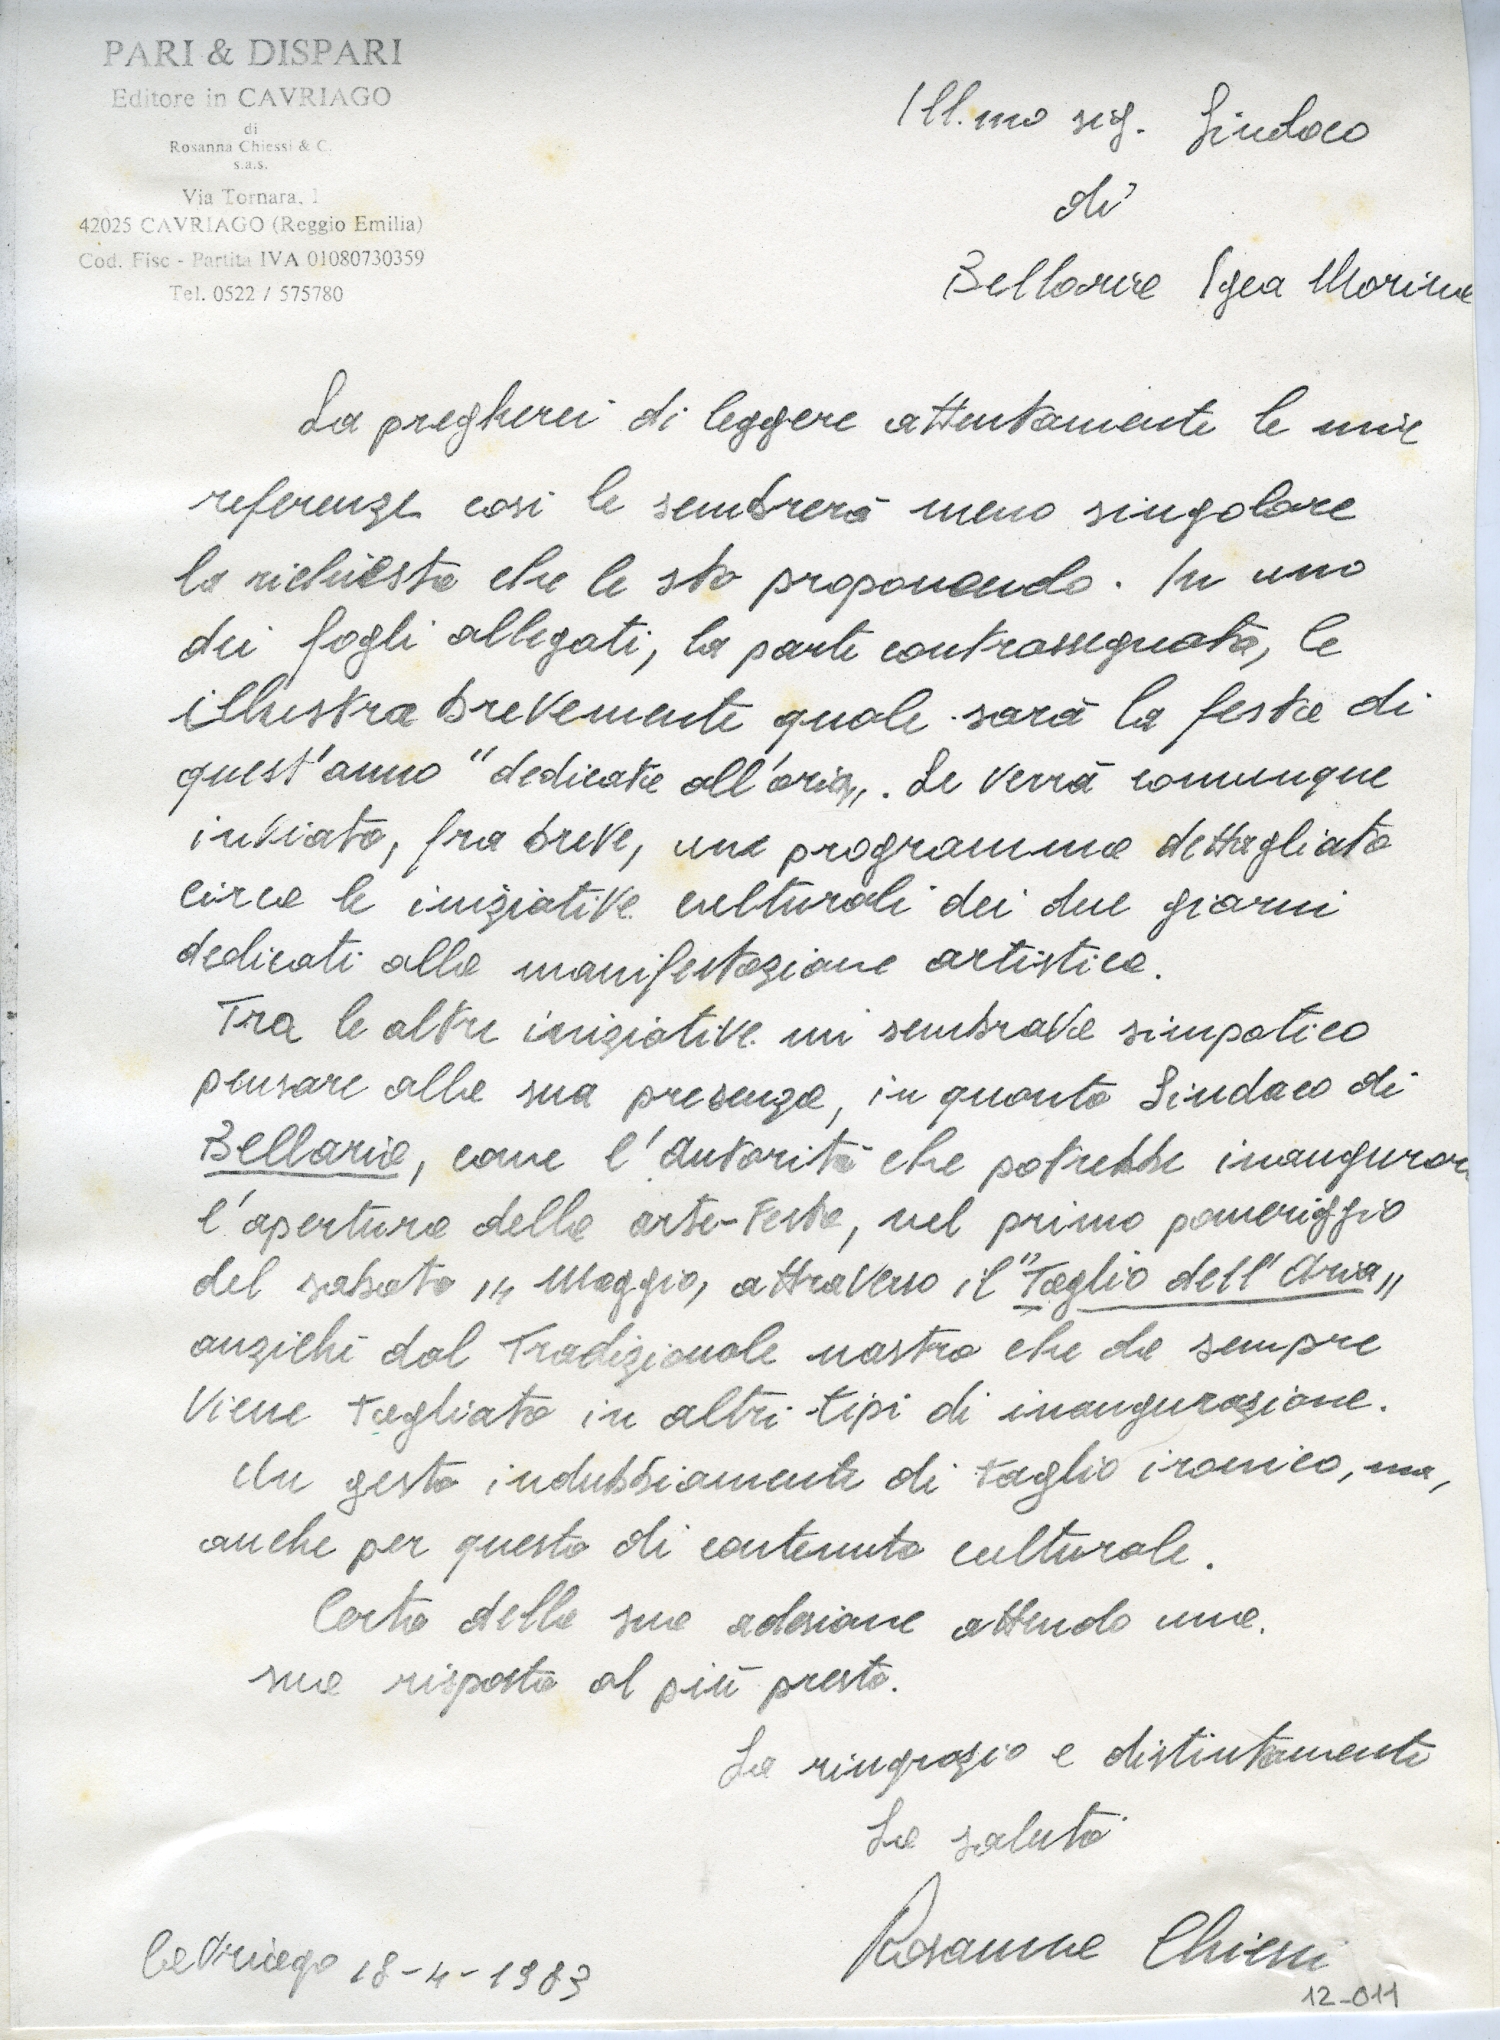 PARI & DISPARI
Editore in CAVRIAGO
di
Rosanna Chiessi & C.
s.a.s.
Via Tornara, 1
42025 CAVRIAGO (Reggio Emilia)
Cod. Fisc - Partita IVA 01080730359
Tel. 0522 / 575780
Ill.mo sig. Sindaco
di
Bellaria Igea Marina
La pregherei di leggere attentamente le mie
referenze così le sembrerà meno singolare
la richiesta che le sto proponendo. In uno
dei fogli allegati, la parte contrassegnata, le
illustra brevemente quale sarà la festa di
quest'anno "dedicata all'aria". Le verrà comunque
inviato, fra breve, una programma dettagliato
circa le iniziative culturali dei due giorni
dedicati alla manifestazione artistica.
Tra le altre iniziative mi sembrava simpatico
pensare alla sua presenza, in quanto Sindaco di
Bellaria, come l'autorità che potrebbe inaugurare
l'apertura della arte-festa, nel primo pomeriggio
del sabato 14 Maggio, attraverso il "Taglio dell'Aria"
anziché dal Tradizionale nastro che da sempre
viene tagliato in altri tipi di inaugurazione.
Un gesto indubbiamente di taglio ironico, ma,
anche per questo di contenuto culturale.
Certa della sua adesione attendo una.
sua risposta al più presto.
La ringrazio e distintamente
La saluto
Rosanna Chiessi
Cavriago 18-4-1983
12-011